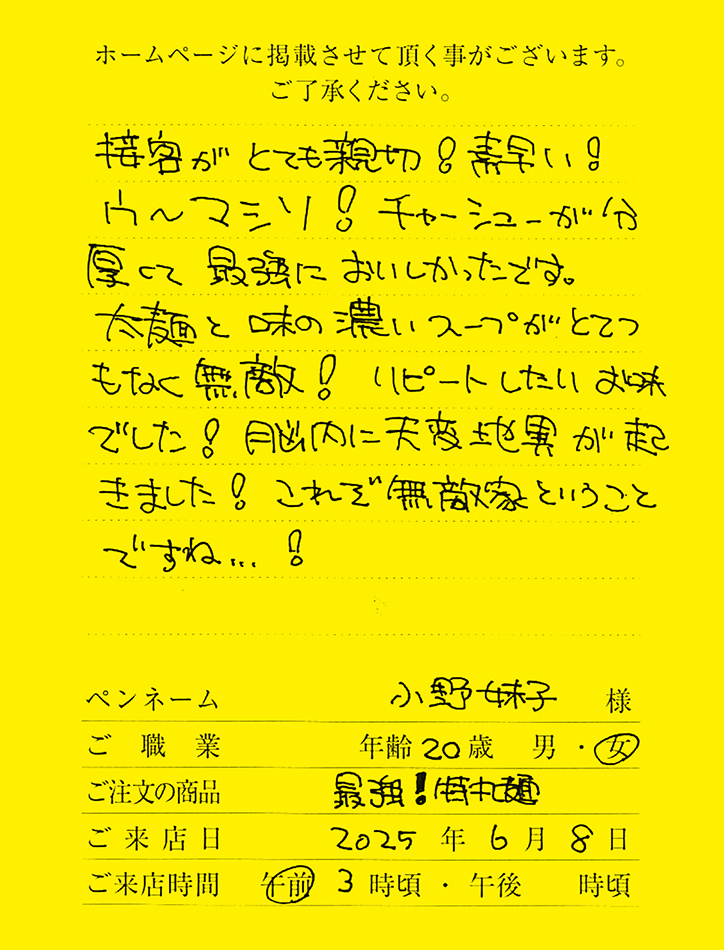 ホームページに掲載させて頂く事がございます。
ご了承ください。
接客がとても親切！素早い！
ウ〜マシソ！チャーシューが分
厚くて最強においしかったです。
太麺と味の濃いスープがとてつ
もなく無敵！リピートしたいお味
でした！脳内に天変地異が起
きました！これぞ無敵家ということ
ですね…！
ペンネーム 小野妹子 様
ご職業 年齢20歳 男・女
ご注文の商品 最強！特丸麺
ご来店日 2025年6月8日
ご来店時間 午前 3時頃・午後 時頃